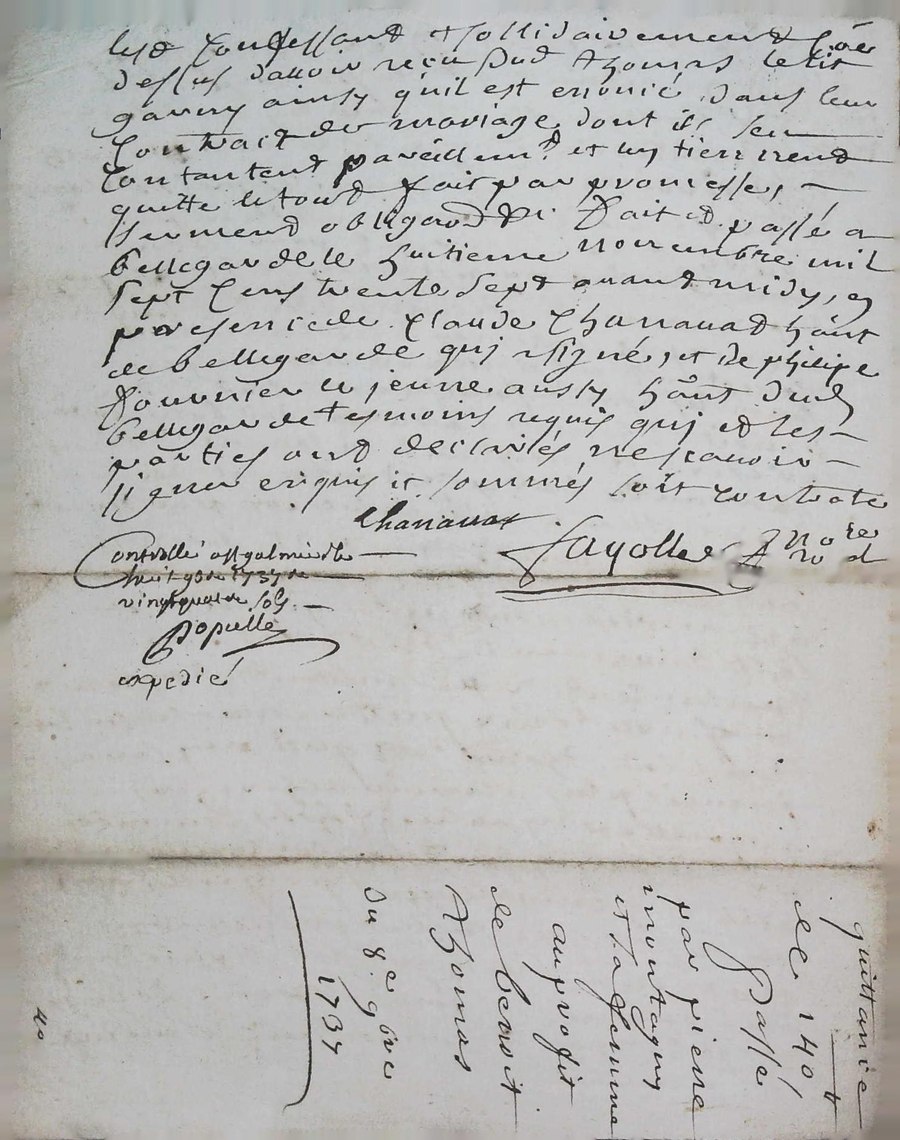 lesd confessant et sollidairement co[mm]e
dessus davoir reçu dud thomas le lit
garny ainsy quil est enoncé dans leur
Contrait de mariage dont ils sen
Contantent pareillemt et en tiennent
quitte le tout fait par promesse,
serment obligaon &c fait et passé a
bellegarde le huitieme novembre mil
sept Cens trente sept avant midy, en
presence de Claude Chanavat hânt
de bellegarde qui a signé, et de philipe
fournier le jeune aussy hânt dud
bellegarde tesmoins requis qui et les
parties ont declarés ne scavoir
signer enquis et sommés soit controlé
Chanavat
fayolle nore rod
Controllé a stgalmier le
huit 9bre 1737 Re
vingtquatre sols
Populle
expedié
quittance
de 140
passé
par pierre
montagny
et sa femme
au profit
de benoit
thomas
du 8e 9bre
1737
40